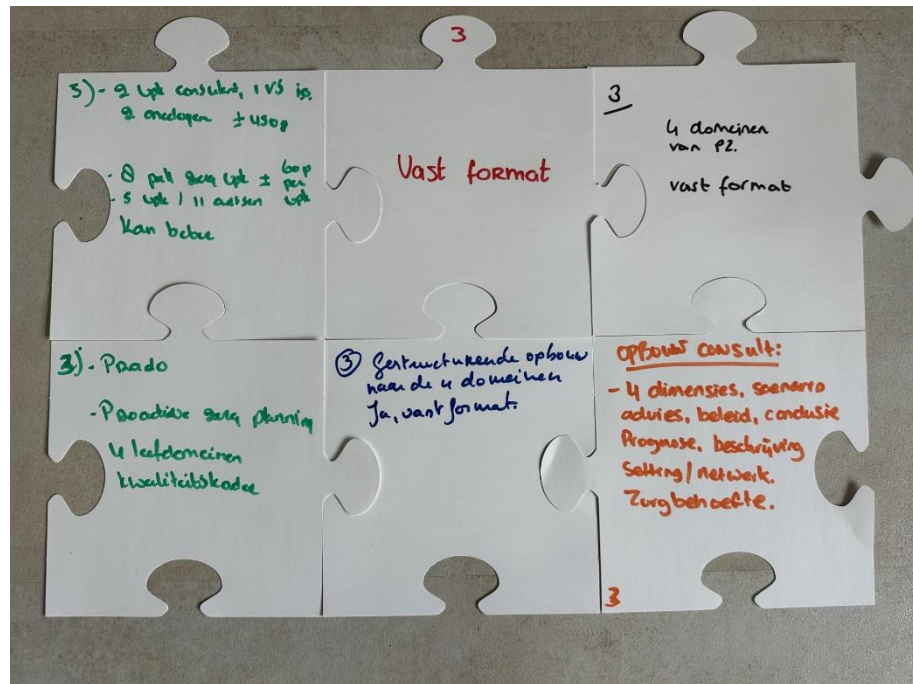 5) - 2 vpk consulent, 1 VS io.
2 oncologen ± 450p
- 8 pall zorg vpk ± 60p per vpk
- 5 vpk / 11 artsen
Kan beter
3
Vast format
3
4 domeinen
van PZ.
vast format
3) - Prado
- Proactieve zorg planning
4 leefdomeinen
kwaliteitskader
③ Gestructureerde opbouw
naar de 4 domeinen
Ja, vast format.
OPBOUW CONSULT:
- 4 dimensies, scenario
advies, beleid, conclusie
Prognose, beschrijving
Setting / netwerk.
Zorgbehoefte.
3